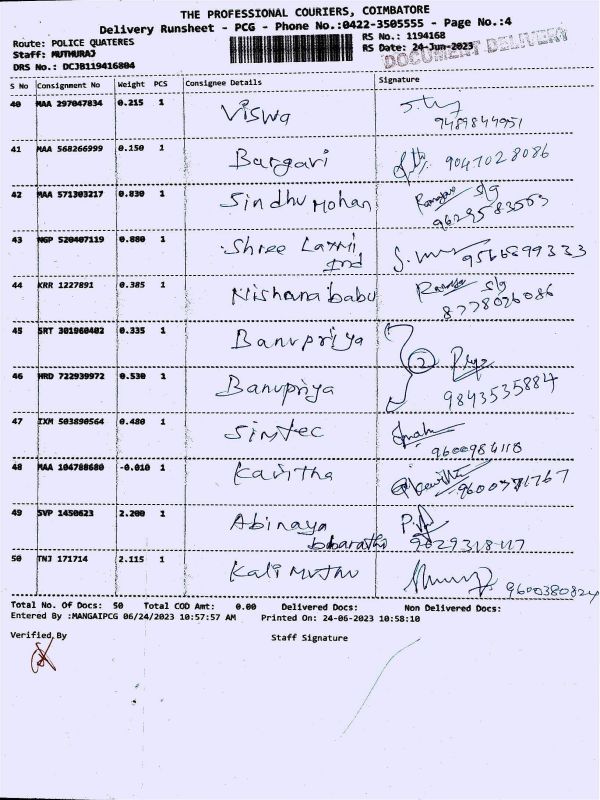 THE PROFESSIONAL COURIERS, COIMBATORE
Delivery Runsheet - PCG - Phone No.:0422-3505555 - Page No.:4
Route: POLICE QUATERES RS No.: 1194168
Staff: MUTHURAJ RS Date: 24-Jun-2023
DOCUMENT DELIVERY
DRS No.: DCJB119416804
S No Consignment No Weight PCS Consignee Details Signature
40 MAA 297047834 0.215 1 Viswa
9489844951
41 MAA 568266999 0.150 1 Bargavi 9047028086
42 MAA 571303217 0.830 1 Sindhu Mohan s/g
9629583553
43 NGP 520407119 0.880 1 Shree Laxmi
Ind 9566899333
44 KRR 1227891 0.385 1 Kishana babu s/g
8778026086
45 SRT 301960402 0.335 1 Banupriya
2
46 MRD 722939972 0.530 1 Banupriya Priya
9843535884
47 IXM 503890564 0.480 1 Simtec
9600984118
48 MAA 104788680 -0.010 1 Kavitha Kavitha
9600771767
49 SVP 1450623 2.200 1 Abinaya
50 TNJ 171714 2.115 1 Kali Muthu
9600380824
Total No. Of Docs: 50 Total COD Amt: 0.00 Delivered Docs: Non Delivered Docs:
Entered By :MANGAIPCG 06/24/2023 10:57:57 AM Printed On: 24-06-2023 10:58:10
Verified By Staff Signature